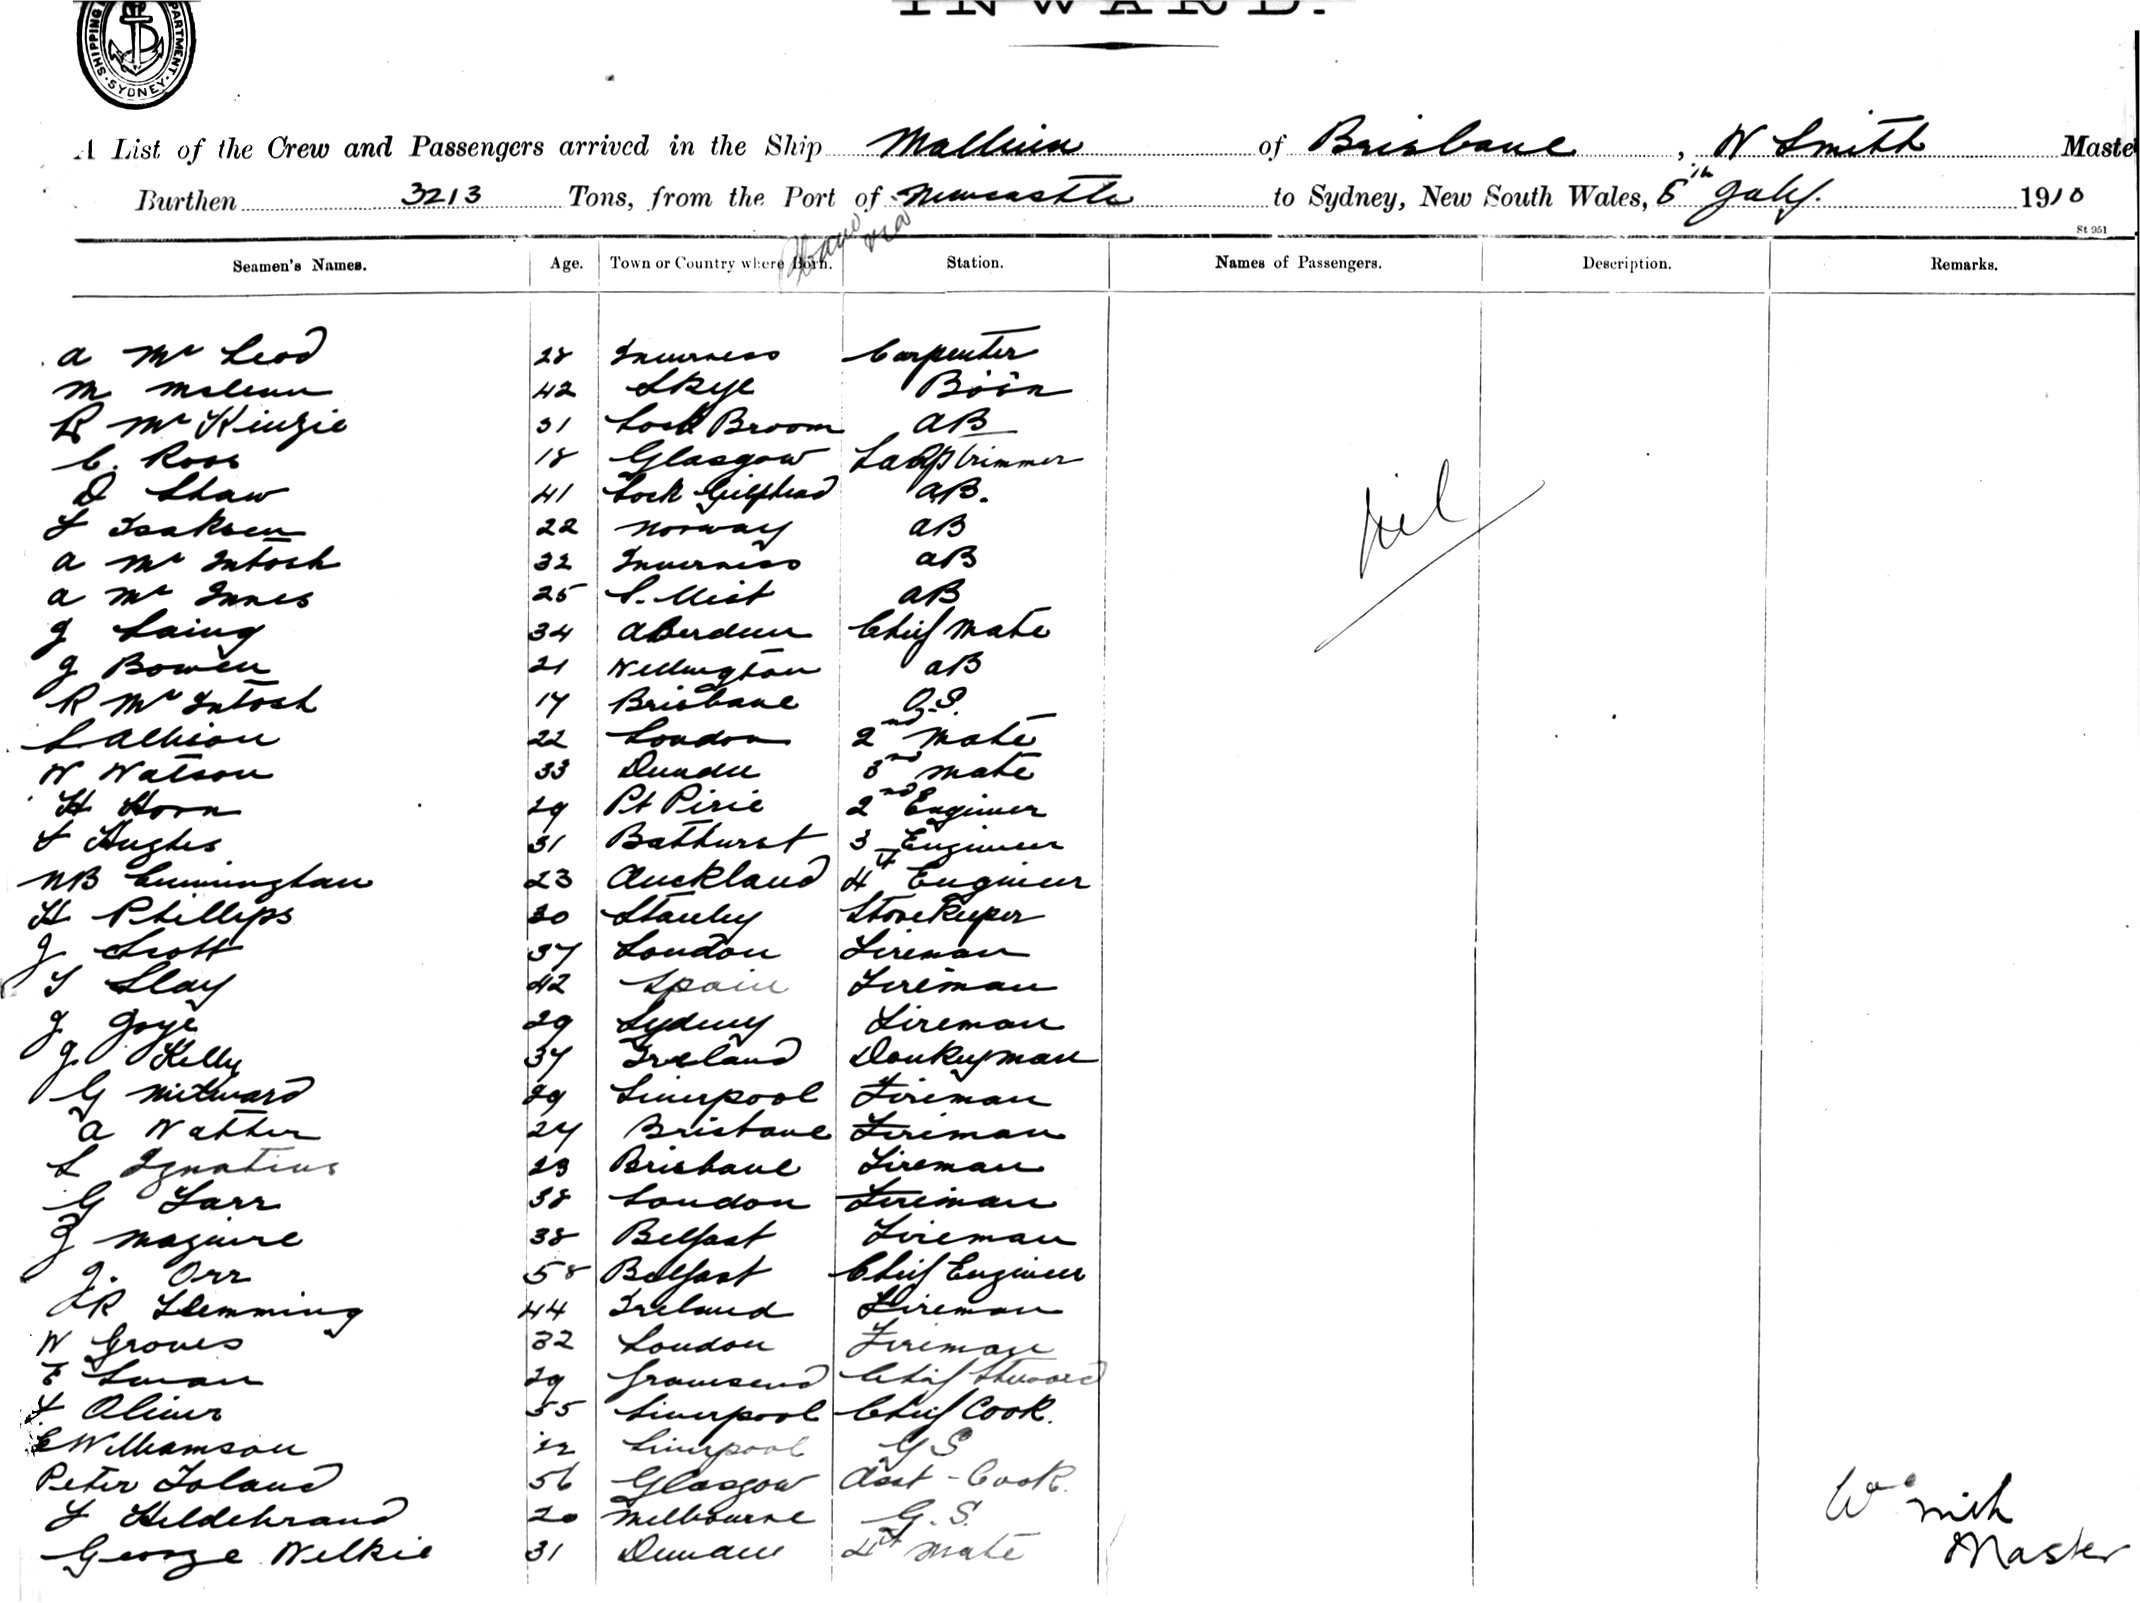 SHIPPING DEPARTMENT · SYDNEY ·
INWARD.
A List of the Crew and Passengers arrived in the Ship Mallina of Brisbane, W Smith Maste
Burthen 3213 Tons, from the Port of Newcastle to Sydney, New South Wales, 5th July. 1910
via
St 951
Seamen's Names. Age. Town or Country where Born. Station. Names of Passengers. Description. Remarks.
A Mc Leod 28 Inverness Carpenter
M McLean 42 Skye Bosn
R McKinzie 31 Loch Broom AB
C. Ross 18 Glasgow Lamptrimmer
D Shaw 41 Lock Gilphead AB.
nil
L Isaksen 22 Norway AB
A Mc Intosh 32 Inverness AB
A Mc Innes 25 S. Uist AB
J Laing 34 Aberdeen Chief Mate
J Bowen 21 Wellington AB
R Mc Intosh 17 Brisbane O.S.
S Allison 22 London 2nd Mate
W Watson 33 Dundee 3rd Mate
H Horn 29 Pt Pirie 2nd Engineer
Hughes 31 Bathurst 3 Engineer
NB Cunningham 23 Auckland 4th Engineer
H Phillips 30 Stanley Storekeeper
J Scott 37 London Fireman
Slay 42 Spain Fireman
J Joye 29 Sydney Fireman
J Kelly 37 Ireland Donkeyman
G Millward 29 Liverpool Fireman
A Watter 24 Brisbane Fireman
L Ignatius 23 Brisbane Fireman
G Farr 38 London Fireman
J Maguire 38 Belfast Fireman
J. Orr 58 Belfast Chief Engineer
JR Flemming 44 Ireland Fireman
W Groves 32 London Fireman
E Swan 29 Gravesend Chief Steward
F Oliver 55 Liverpool Chief Cook.
E Williamson 22 Liverpool G S
Peter Toland 56 Glasgow Asst - Cook.
F Hildebrand 20 Melbourne G. S.
George Wilkie 31 Dundee 4th Mate
Wm Smith
Master